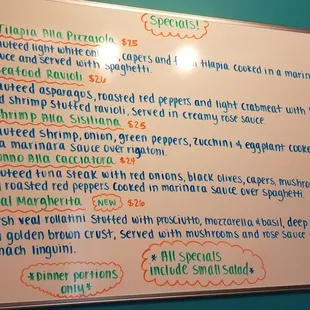 Specials!
Tilapia Alla Pizzaiola $25
auteed light white onions, capers and fresh tilapia cooked in a marin
uce and served with spaghetti.
eafood Ravioli $26
auteed asparagus, roasted red peppers and light crabmeat with
d shrimp stuffed ravioli, served in creamy rose sauce
Shrimp Alla Sisiliana $25
auteed shrimp, onion, green peppers, zucchini & eggplant cooke
a marinara sauce over rigatoni.
onno Alla Cacciatora $24
auteed tuna steak with red onions, black olives, capers, mushro
roasted red peppers cooked in marinara sauce over spaghetti.
al Margherita NEW $26
sh veal rollatini stuffed with prosciutto, mozzarella & basil, deep
golden brown crust, served with mushrooms and rose sauce
nach linguini.
*Dinner portions
only*
*All specials
include small salad*